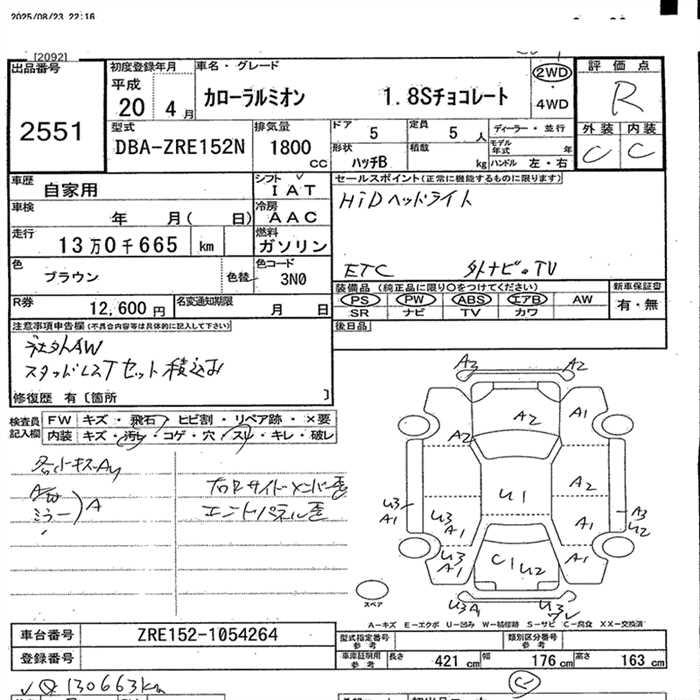 2025/08/23 22:16
[2092]
出品番号
2551
初度登録年月
平成
20 4月
車名・グレード
カローラルミオン 1.8Sチョコレート
2WD
4WD
評価点
R
外装 内装
C C
型式
DBA-ZRE152N
排気量
1800 cc
ドア 5
定員 5人
ディーラー・並行
モデル年式 年
形状 ハッチB
積載 kg
ハンドル 左・右
車歴 自家用
シフト IAT
セールスポイント(正常に機能するものに限ります)
HiDヘッドライト
車検 年 月( 日)
冷房 AAC
走行 13万0千665 km
燃料 ガソリン
ETC 外ナビ。TV
色 ブラウン 色替
色コード 3N0
装備品 (純正品に限り○をつけてください)
新車保証書
PS PW ABS エアB AW
有・無
SR ナビ TV カワ
R券 12,600円
名変通知期限 月 日
後日品
注意事項申告欄(不具合内容等は具体的に記入して下さい)
社外AW
スタッドレスTセット積込み
修復歴 有〔箇所 〕
検査員記入欄
FW キズ・飛石・ヒビ割・リペア跡・×要
内装 キズ・汚レ・コゲ・穴・スレ・キレ・破レ
ミラー A
右Rサイドメンバー歪
エンドパネル歪
A3 A2
A2 A1
A2
U1 A2
U3 A1
U3 A1 A1
A3 U2
U3 A1 C1 U2 A1
スペア
A-キズ E-エクボ U-凹み W-補修跡 S-サビ C-腐食 XX-交換済
車台番号 ZRE152-1054264
登録番号
型式指定番号 参考
類別区分番号 参考
車庫証明用 参考 長さ 421cm 幅 176cm 高さ 163cm
130663km
C